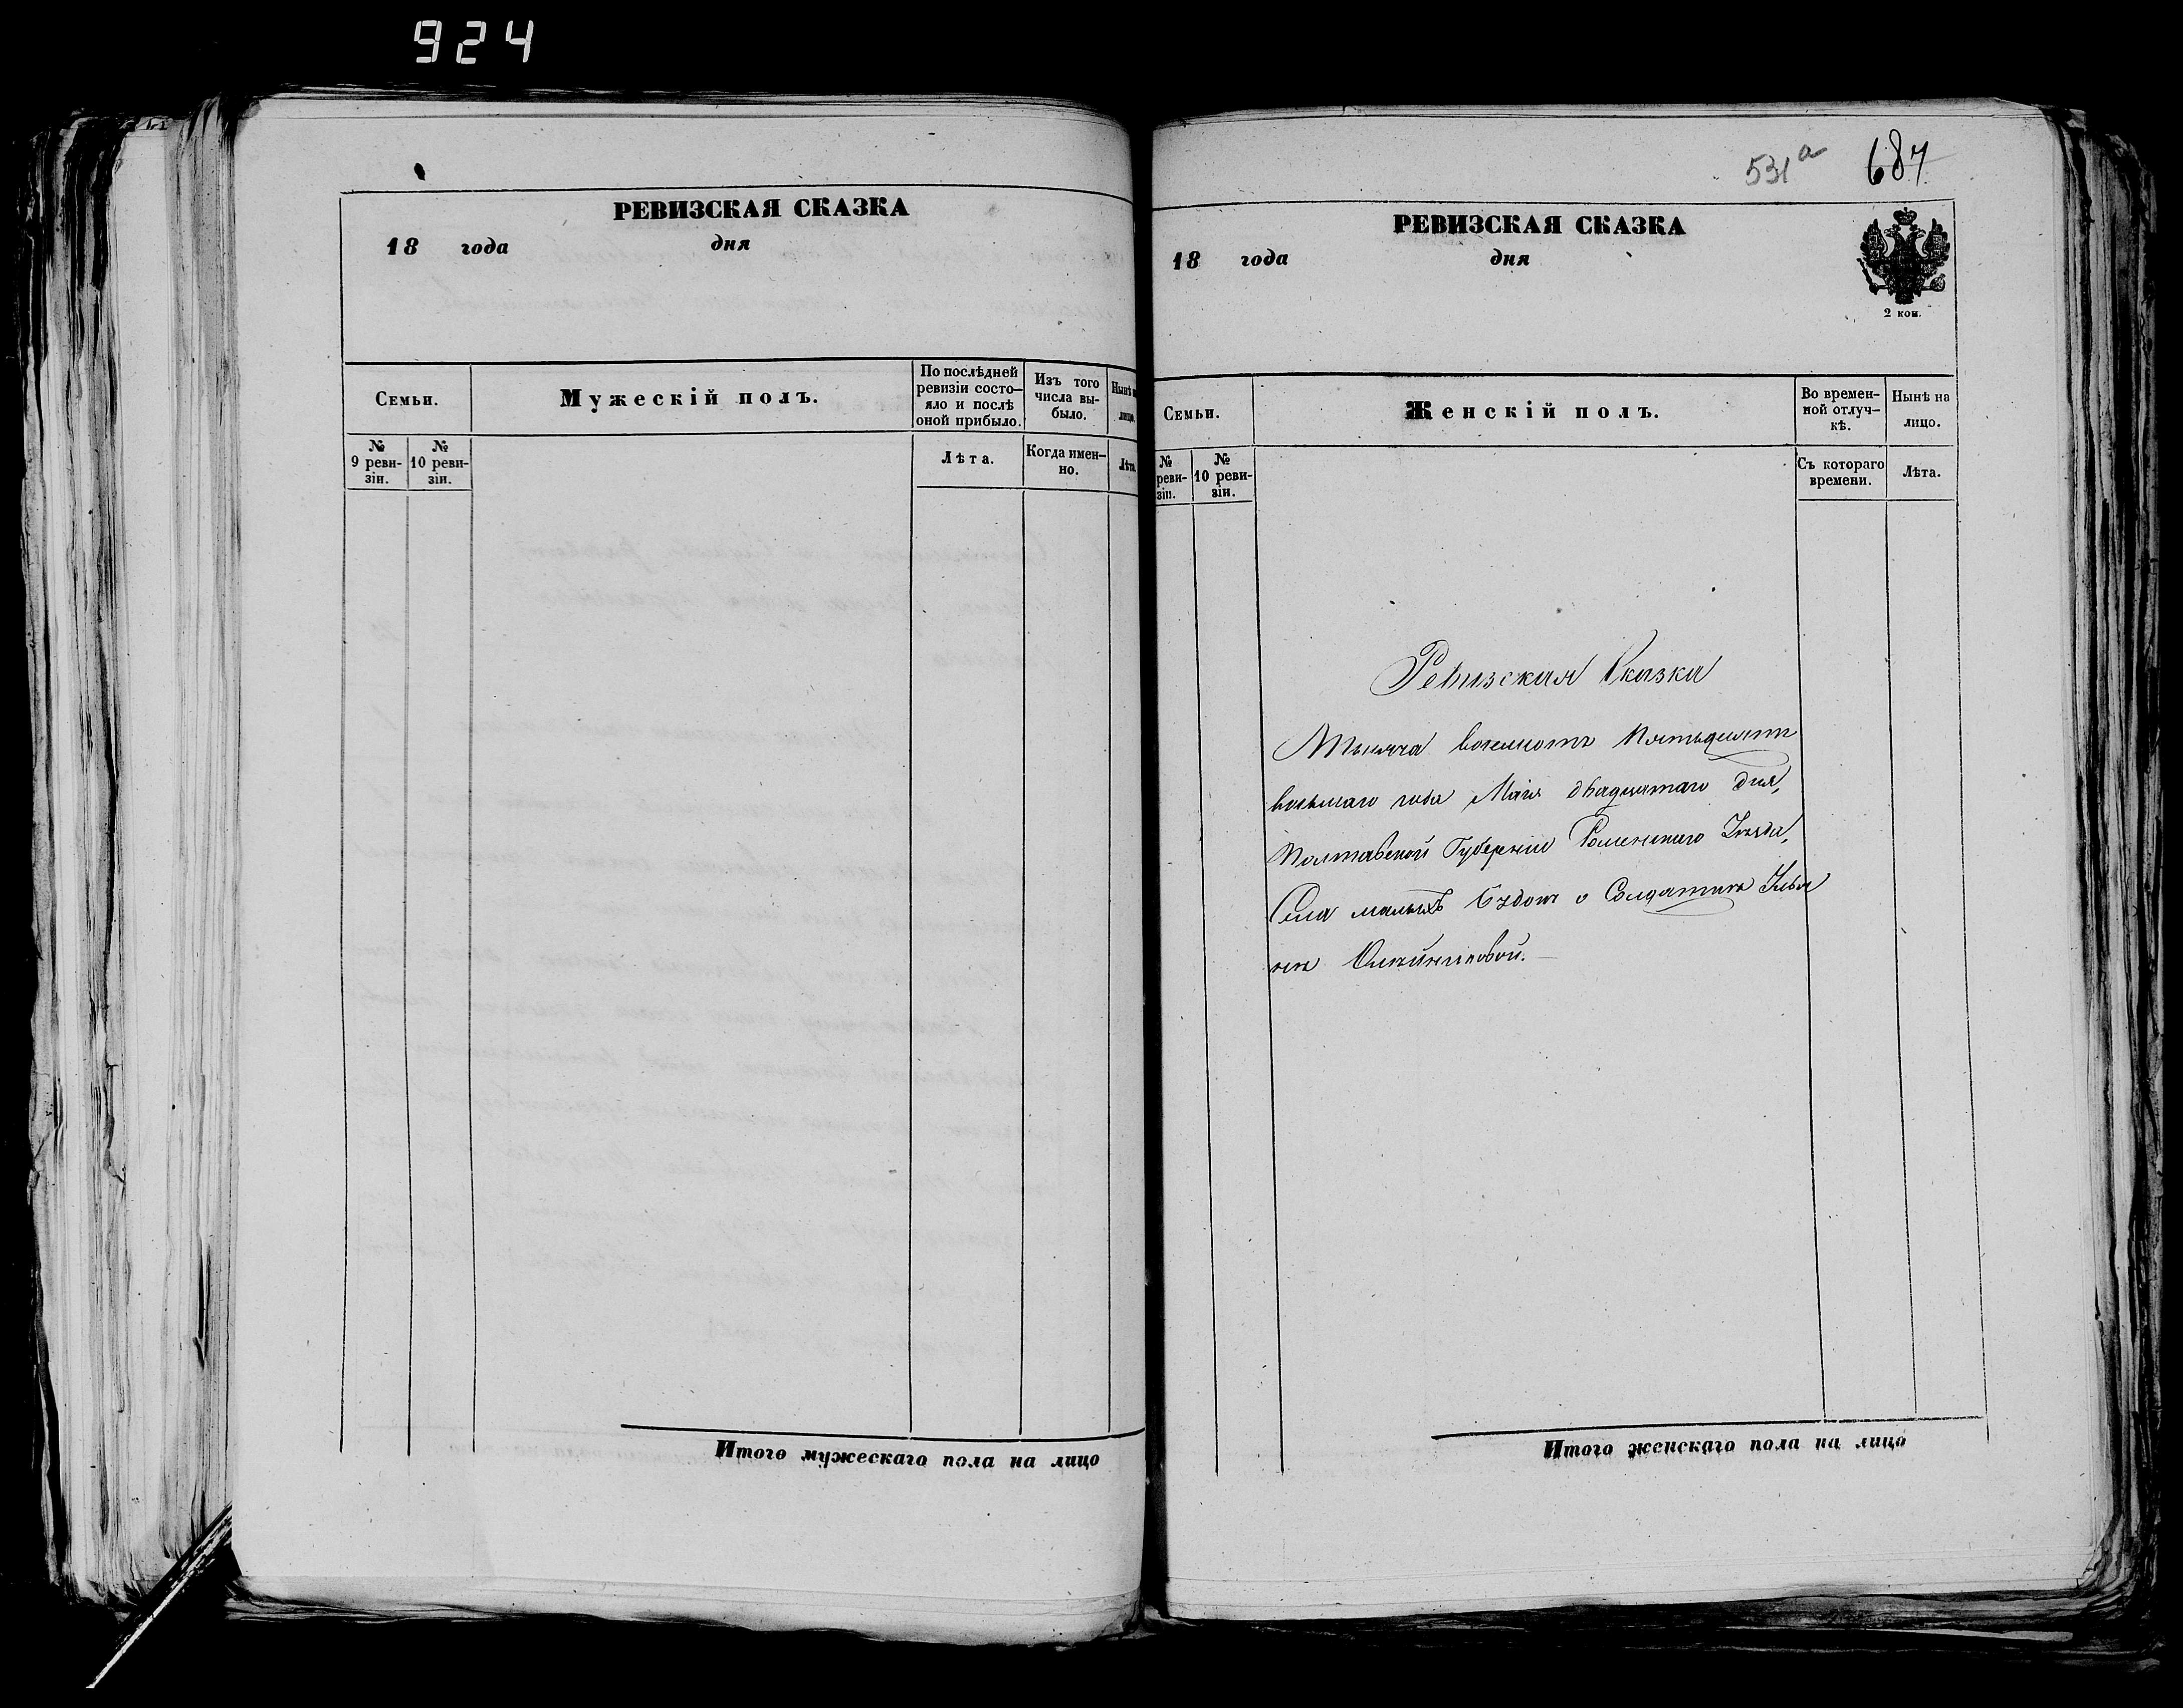 924
РЕВИЗСКАЯ СКАЗКА
18 года дня
Семьи.
Мужескій полъ.
По послѣдней
ревизіи состо-
яло и послѣ
оной прибыло.
Изъ того
числа вы-
было.
Нынѣ
лицо.
№
9 реви-
зіи.
№
10 реви-
зіи.
Лѣта.
Когда имен-
но.
Лѣта.
Итого мужескаго пола на лицо
531а 687
РЕВИЗСКАЯ СКАЗКА
18 года дня
2 коп.
Семьи.
Женскій полъ.
Во времен-
ной отлуч-
кѣ.
Нынѣ на
лицо.
№
реви-
зіи.
№
10 реви-
зіи.
Съ котораго
времени.
Лѣта.
Ревизская Сказка
Тысяча восемсотъ пятьдесятъ
восьмаго года Маія двадцятаго дня,
Полтавской Губерніи Роменского Уезда,
Села малыхъ Будокъ о Солдаткѣ Улья
нѣ Олѣйниковой.
Итого женскаго пола на лицо